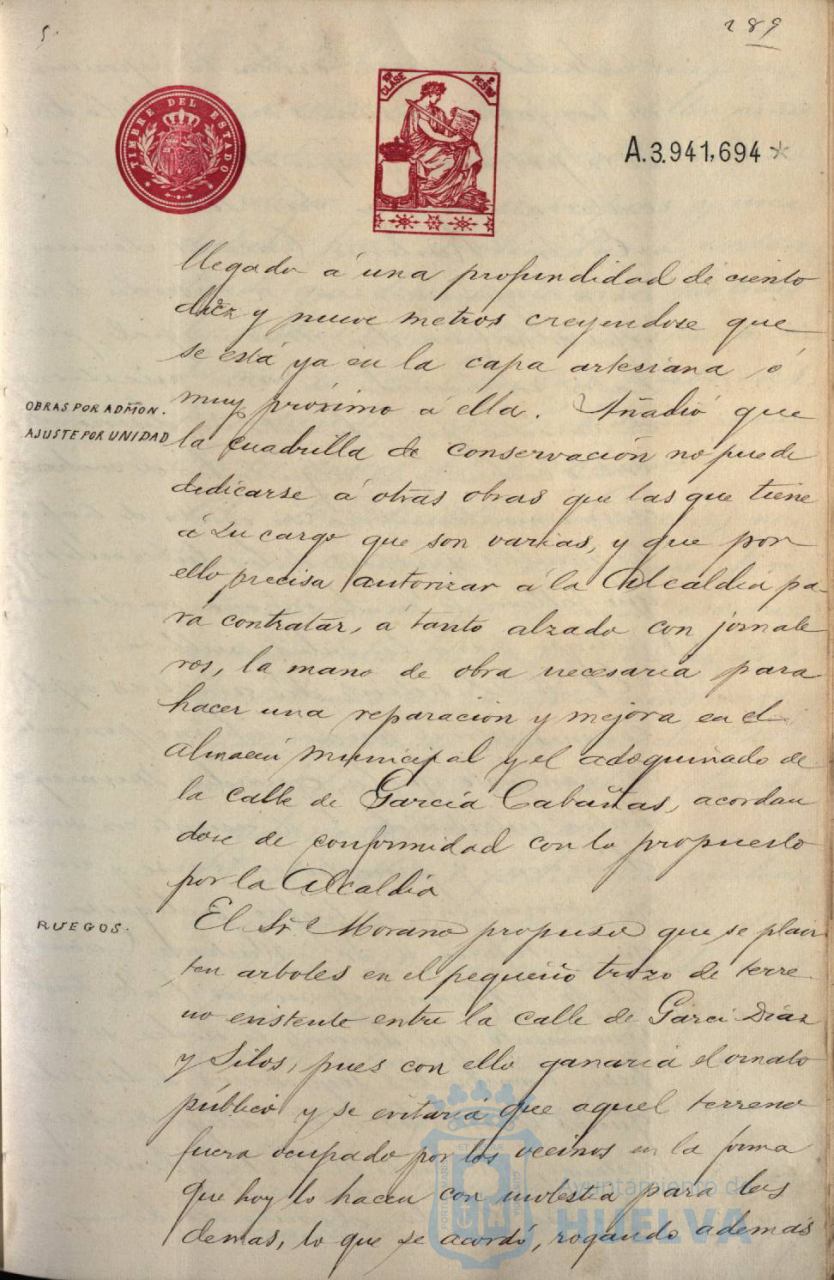 5.
289
TIMBRE DEL ESTADO
CLASE
PESETA
A.3.941,694*
llegado á una profundidad de ciento
diez y nueve metros creyendose que
se está ya en la capa artesiana ó
muy próximo á ella. Añadió que
OBRAS POR ADMÓN.
AJUSTE POR UNIDAD
la cuadrilla de conservación no puede
dedicarse á otras obras que las que tiene
á su cargo que son varias, y que por
ello precisa autorizar á la Alcaldia pa-
ra contratar, á tanto alzado con jornale
ros, la mano de obra necesaria para
hacer una reparación y mejora en el
almacén municipal y el adoquinado de
la calle de García Cabañas, acordan
dose de conformidad con lo propuesto
por la Alcaldia
RUEGOS.
El Sr. Morano propuso que se plan
ten arboles en el pequeño trozo de terre
no existente entre la calle de Garci-Diaz
y Silos, pues con ello ganaría el ornato
público y se evitaría que aquel terreno
fuera ocupado por los vecinos en la forma
que hoy lo hacen con molestia para los
demas, lo que se acordó, rogando además
Ayuntamiento de
HUELVA